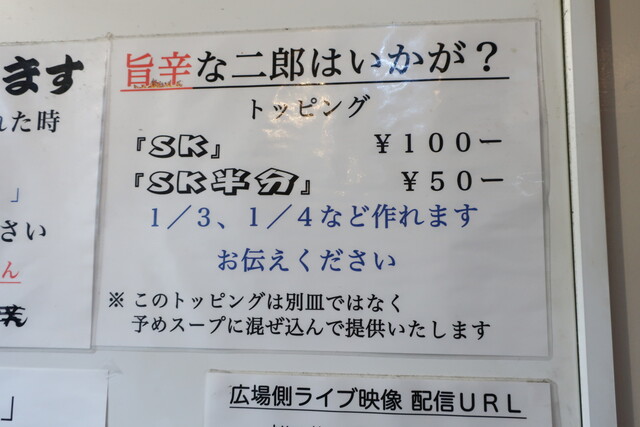 ます
れた時
」
さい
ん
」
旨辛な二郎はいかが？
トッピング
『SK』 ￥１００ー
『SK半分』 ￥５０ー
１／３、１／４など作れます
お伝えください
※ このトッピングは別皿ではなく
予めスープに混ぜ込んで提供いたします
広場側ライブ映像 配信ＵＲＬ